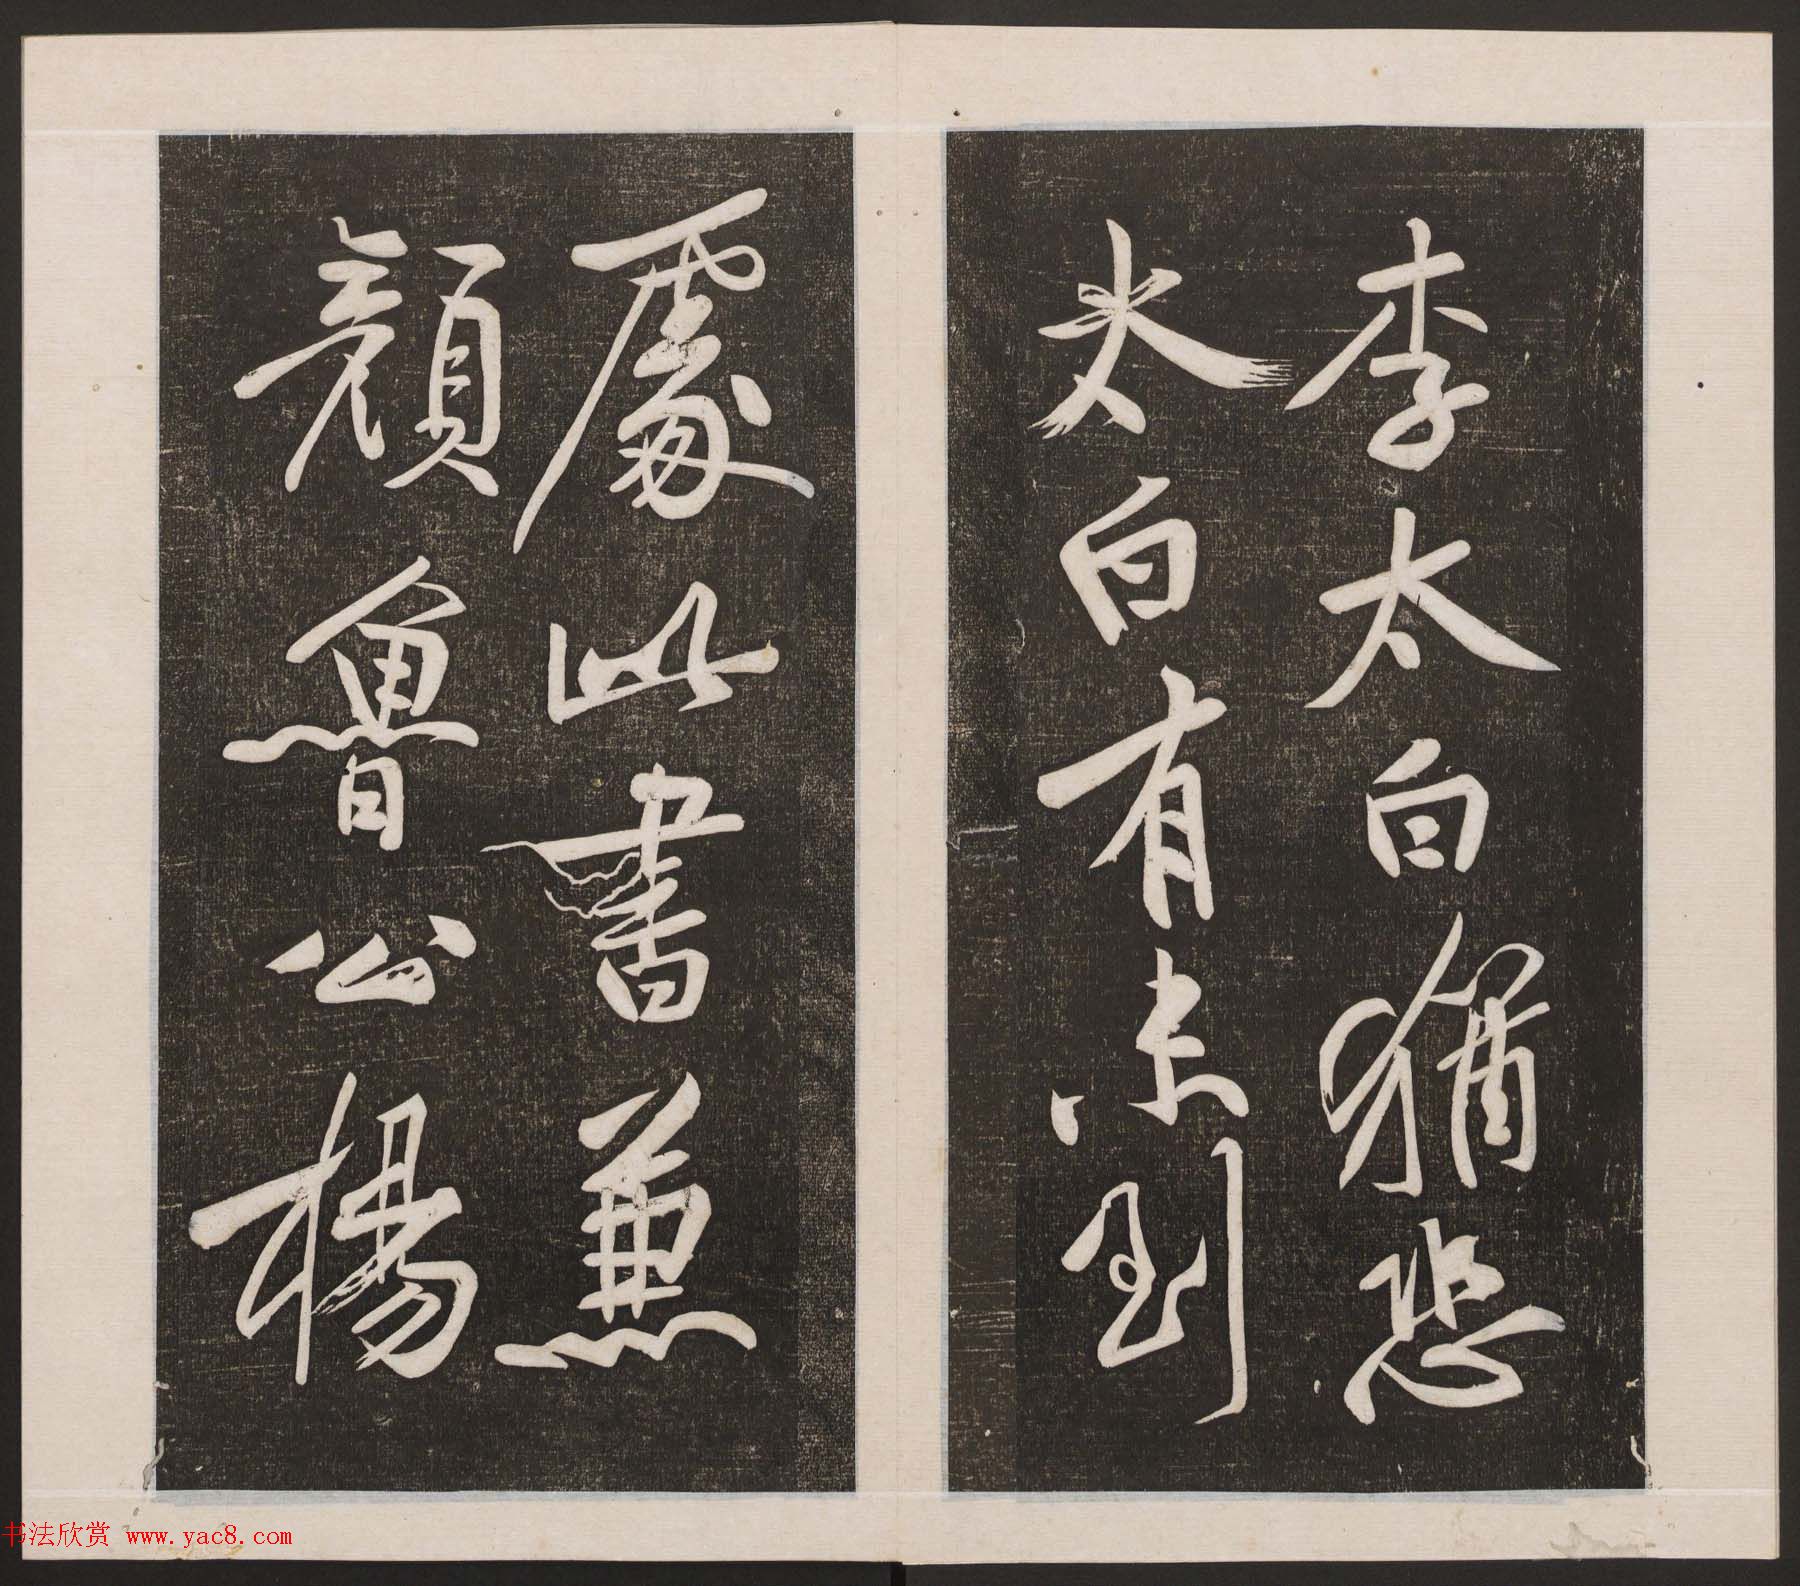 李太白猶恐
太白有未到
處此書兼
顏魯公楊
书法欣赏 www.yac8.com